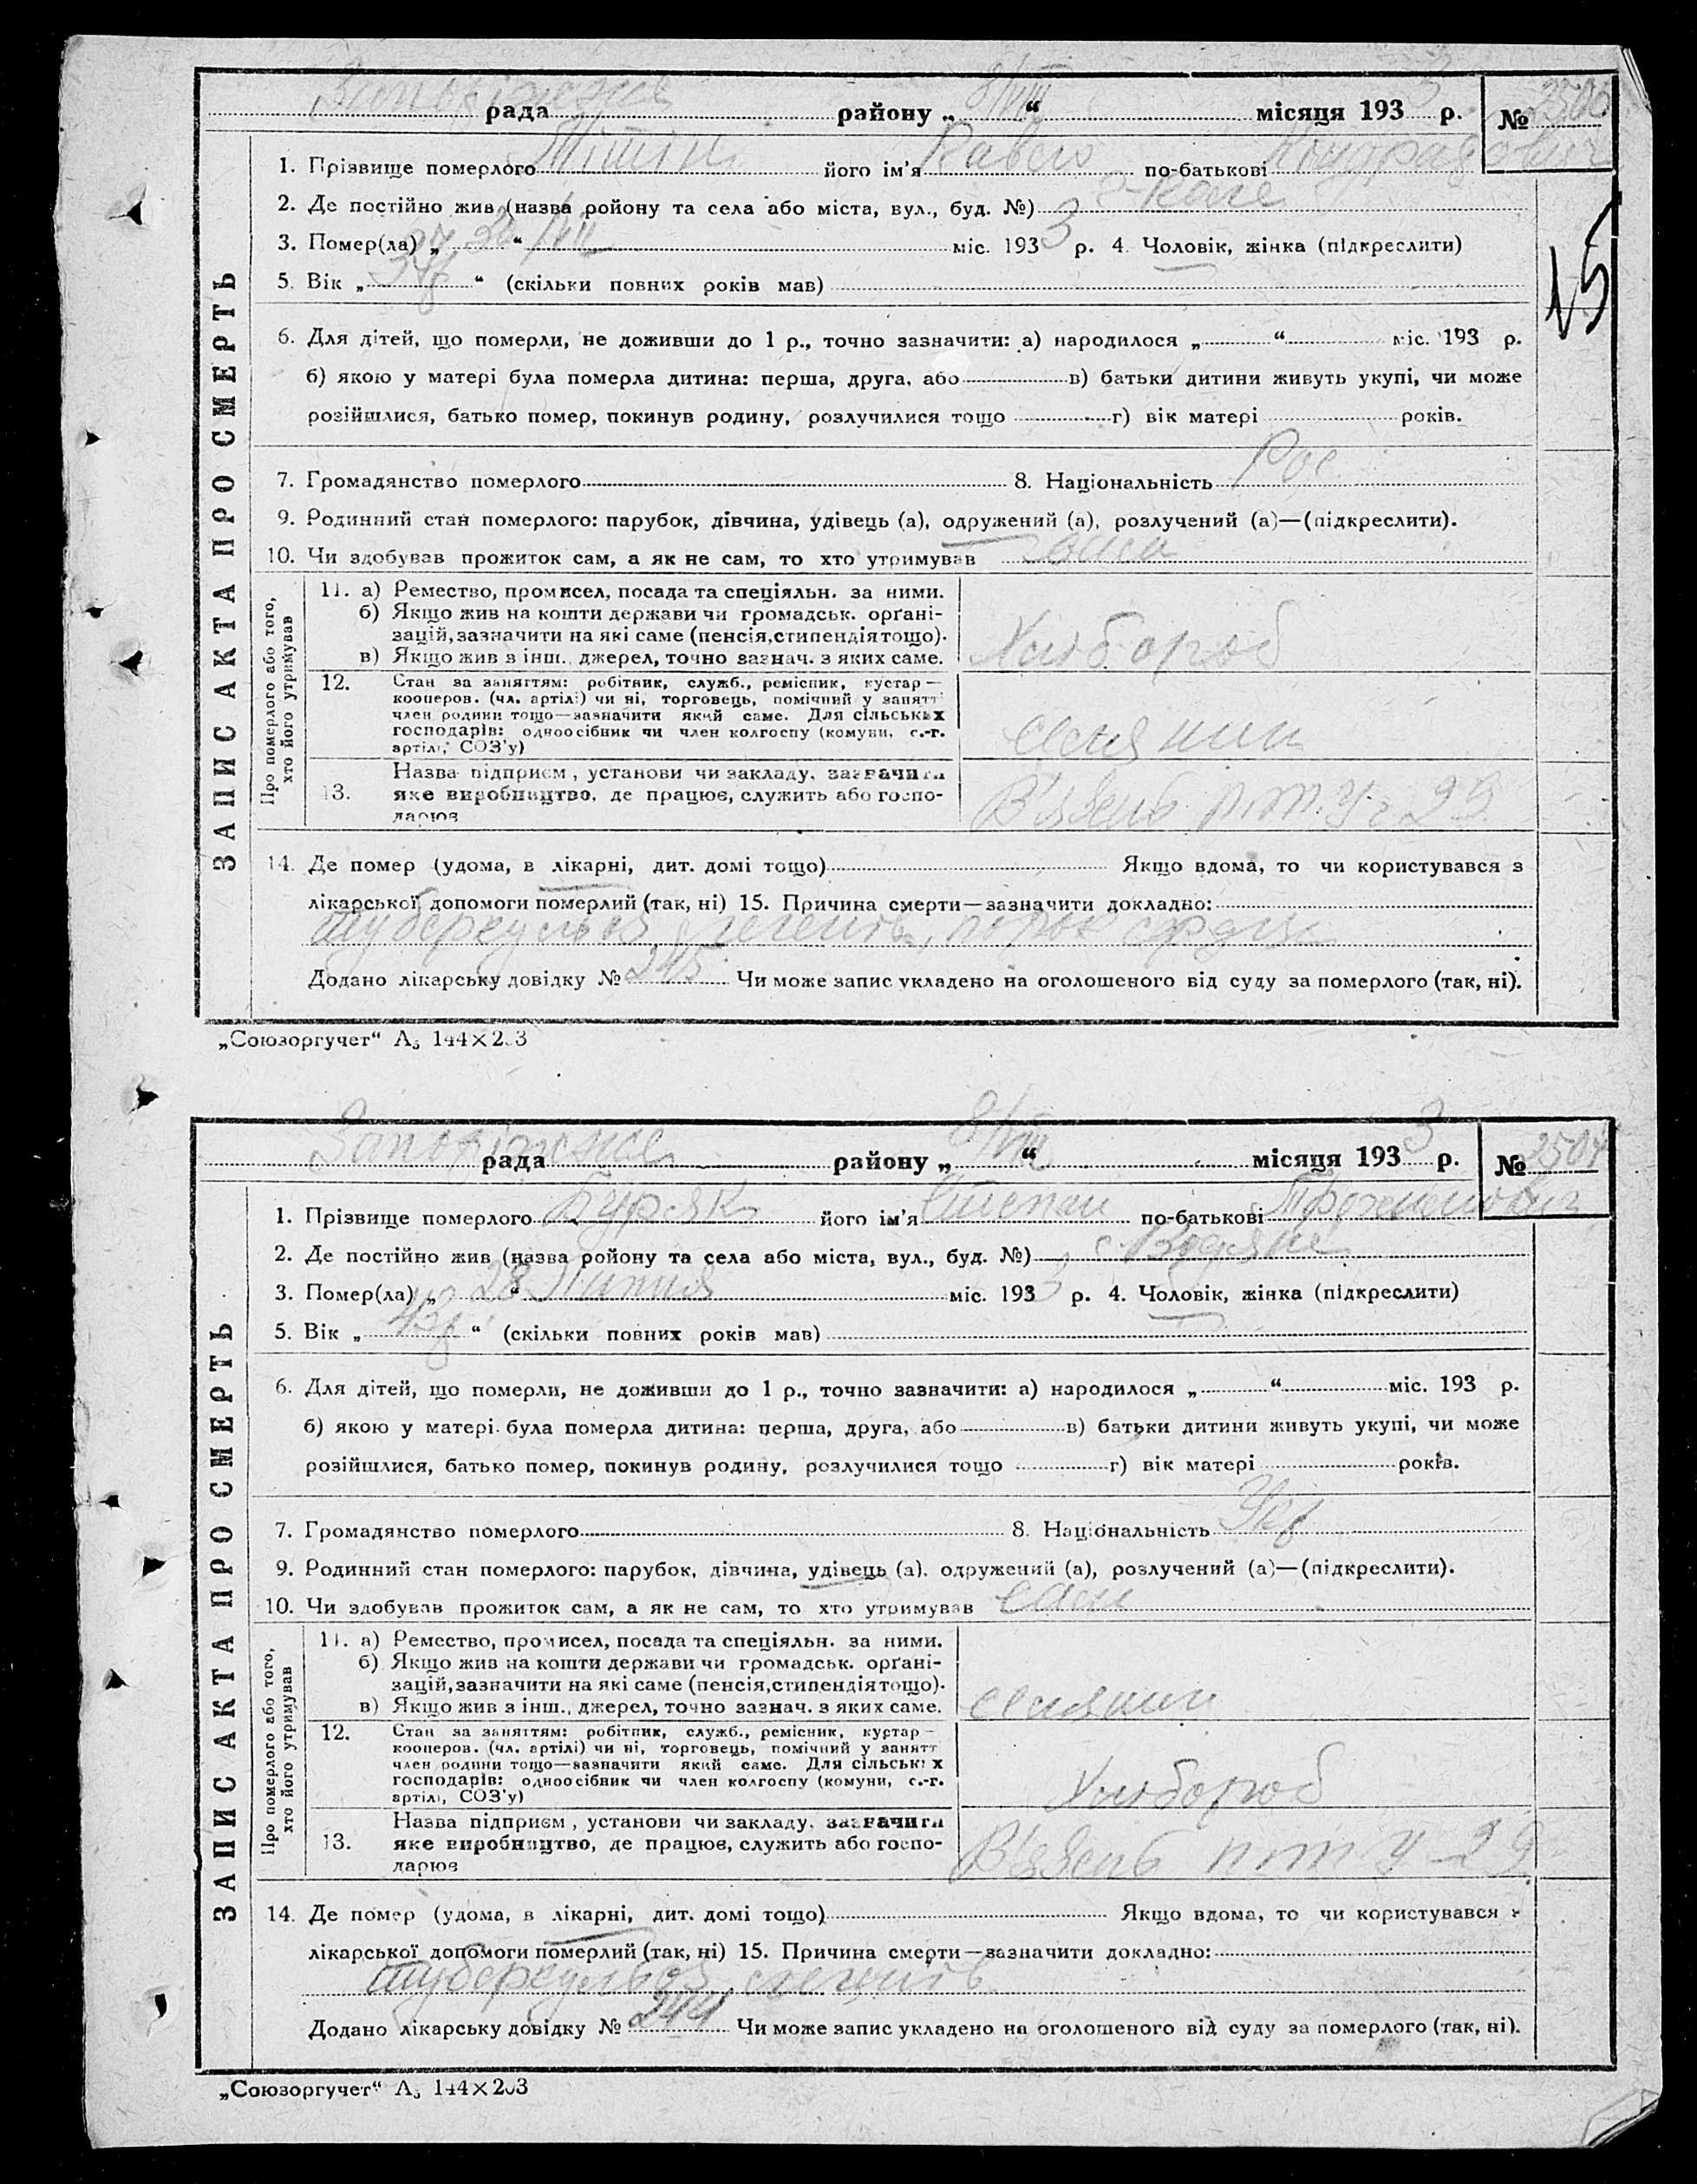 Запоріжжя рада району „ 8/VIII “ місяця 193 3 р. № 2506
ЗАПИС АКТА ПРО СМЕРТЬ
1. Прізвище померлого його ім'я Павло по-батькові Кондратович
2. Де постійно жив (назва ройону та села або міста, вул., буд. №)
3. Помер(ла) „ “ міс. 193 3 р. 4. Чоловік, жінка (підкреслити)
5. Вік „ “ (скільки повних років мав)
6. Для дітей, що померли, не доживши до 1 р., точно зазначити: а) народилося „ “ міс. 193 р.
б) якою у матері була померла дитина: перша, друга, або в) батьки дитини живуть укупі, чи може
розійшлися, батько помер, покинув родину, розлучилися тощо г) вік матері років.
7. Громадянство померлого 8. Національність Рос
9. Родинний стан померлого: парубок, дівчина, удівець (а), одружений (а), розлучений (а)—(підкреслити).
10. Чи здобував прожиток сам, а як не сам, то хто утримував сам
Про померлого або того, хто його утримував
11. а) Ремество, промисел, посада та спеціяльн. за ними.
б) Якщо жив на кошти держави чи громадськ. орґані-
зацій, зазначити на які саме (пенсія, стипендія тощо).
в) Якщо жив з інш. джерел, точно зазнач. з яких саме.
Хлібороб
12. Стан за заняттям: робітник, служб., ремісник, кустар—
кооперов. (чл. артілі) чи ні, торговець, помічний у занятт
член родини тощо—зазначити який саме. Для сільських
господарів: одноосібник чи член колгоспу (комуни, с.-г.
артілі, СОЗ'у)
селянин
13. Назва підприєм, установи чи закладу, зазначити
яке виробництво, де працює, служить або госпо-
дарює
В'язень п т У 29
14. Де помер (удома, в лікарні, дит. домі тощо) Якщо вдома, то чи користувався з
лікарської допомоги померлий (так, ні) 15. Причина смерти—зазначити докладно:
туберкульоз легенів, порок серця
Додано лікарську довідку № 245 Чи може запис укладено на оголошеного від суду за померлого (так, ні).
15
„Союзоргучет“ А₅ 144×203
Запоріжжя рада району „ 8/VIII “ місяця 193 3 р. № 2507
ЗАПИС АКТА ПРО СМЕРТЬ
1. Прізвище померлого Буряк його ім'я Степан по-батькові
2. Де постійно жив (назва ройону та села або міста, вул., буд. №) с. Водяне
3. Помер(ла) „ 28 “ Липня міс. 193 3 р. 4. Чоловік, жінка (підкреслити)
5. Вік „ “ (скільки повних років мав)
6. Для дітей, що померли, не доживши до 1 р., точно зазначити: а) народилося „ “ міс. 193 р.
б) якою у матері була померла дитина: перша, друга, або в) батьки дитини живуть укупі, чи може
розійшлися, батько помер, покинув родину, розлучилися тощо г) вік матері років.
7. Громадянство померлого 8. Національність Укр
9. Родинний стан померлого: парубок, дівчина, удівець (а), одружений (а), розлучений (а)—(підкреслити).
10. Чи здобував прожиток сам, а як не сам, то хто утримував сам
Про померлого або того, хто його утримував
11. а) Ремество, промисел, посада та спеціяльн. за ними.
б) Якщо жив на кошти держави чи громадськ. орґані-
зацій, зазначити на які саме (пенсія, стипендія тощо).
в) Якщо жив з інш., джерел, точно зазнач. з яких саме.
селянин
12. Стан за заняттям: робітник, служб., ремісник, кустар—
кооперов. (чл. артілі) чи ні, торговець, помічний у занятт
член родини тощо—зазначити який саме. Для сільських
господарів: одноосібник чи член колгоспу (комуни, с.-г.
артілі, СОЗ'у)
Хлібороб
13. Назва підприєм, установи чи закладу, зазначити
яке виробництво, де працює, служить або госпо-
дарює
В'язень п т У 29
14. Де помер (удома, в лікарні, дит. домі тощо) Якщо вдома, то чи користувався з
лікарської допомоги померлий (так, ні) 15. Причина смерти—зазначити докладно:
туберкульоз легенів
Додано лікарську довідку № 244 Чи може запис укладено на оголошеного від суду за померлого (так, ні).
„Союзоргучет“ А₅ 144×203